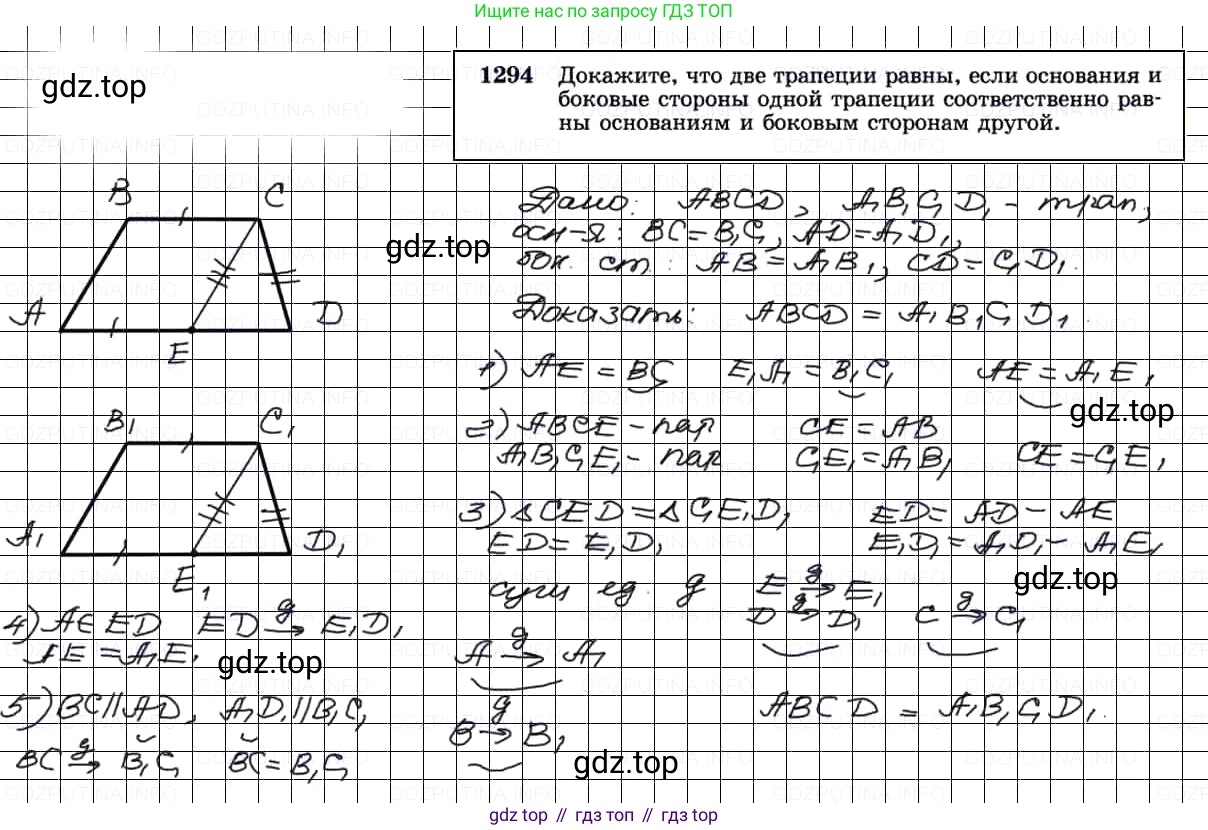 Ищите нас по запросу ГДЗ ТОП
gdz.top
1294 Докажите, что две трапеции равны, если основания и
боковые стороны одной трапеции соответственно рав-
ны основаниям и боковым сторонам другой.
B C
A D
E
B₁ C₁
A₁ D₁
E₁
Дано: ABCD, A₁B₁C₁D₁ - трап,
осн-я: BC=B₁C₁, AD=A₁D₁,
бок. ст.: AB=A₁B₁, CD=C₁D₁.
gdz.top
Доказать: ABCD = A₁B₁C₁D₁.
1) AE = BC E₁A₁ = B₁C₁ AE = A₁E₁
gdz.top
2) ABCE - пар CE = AB
A₁B₁C₁E₁ - пар C₁E₁ = A₁B₁ CE = C₁E₁
3) ΔCED = ΔC₁E₁D₁ ED = AD - AE
ED = E₁D₁ E₁D₁ = A₁D₁ - A₁E₁
gdz.top
сущ ед. g E g→ E₁
D g→ D₁ C g→ C₁
4) A∈ED ED g→ E₁D₁
AE = A₁E₁ A g→ A₁
gdz.top
5) BC∥AD, A₁D₁∥B₁C₁
BC g→ B₁C₁ BC = B₁C₁ B g→ B₁
ABCD = A₁B₁C₁D₁.
gdz.top
gdz.top // гдз топ // gdz top
GDZPUTINA.INFO